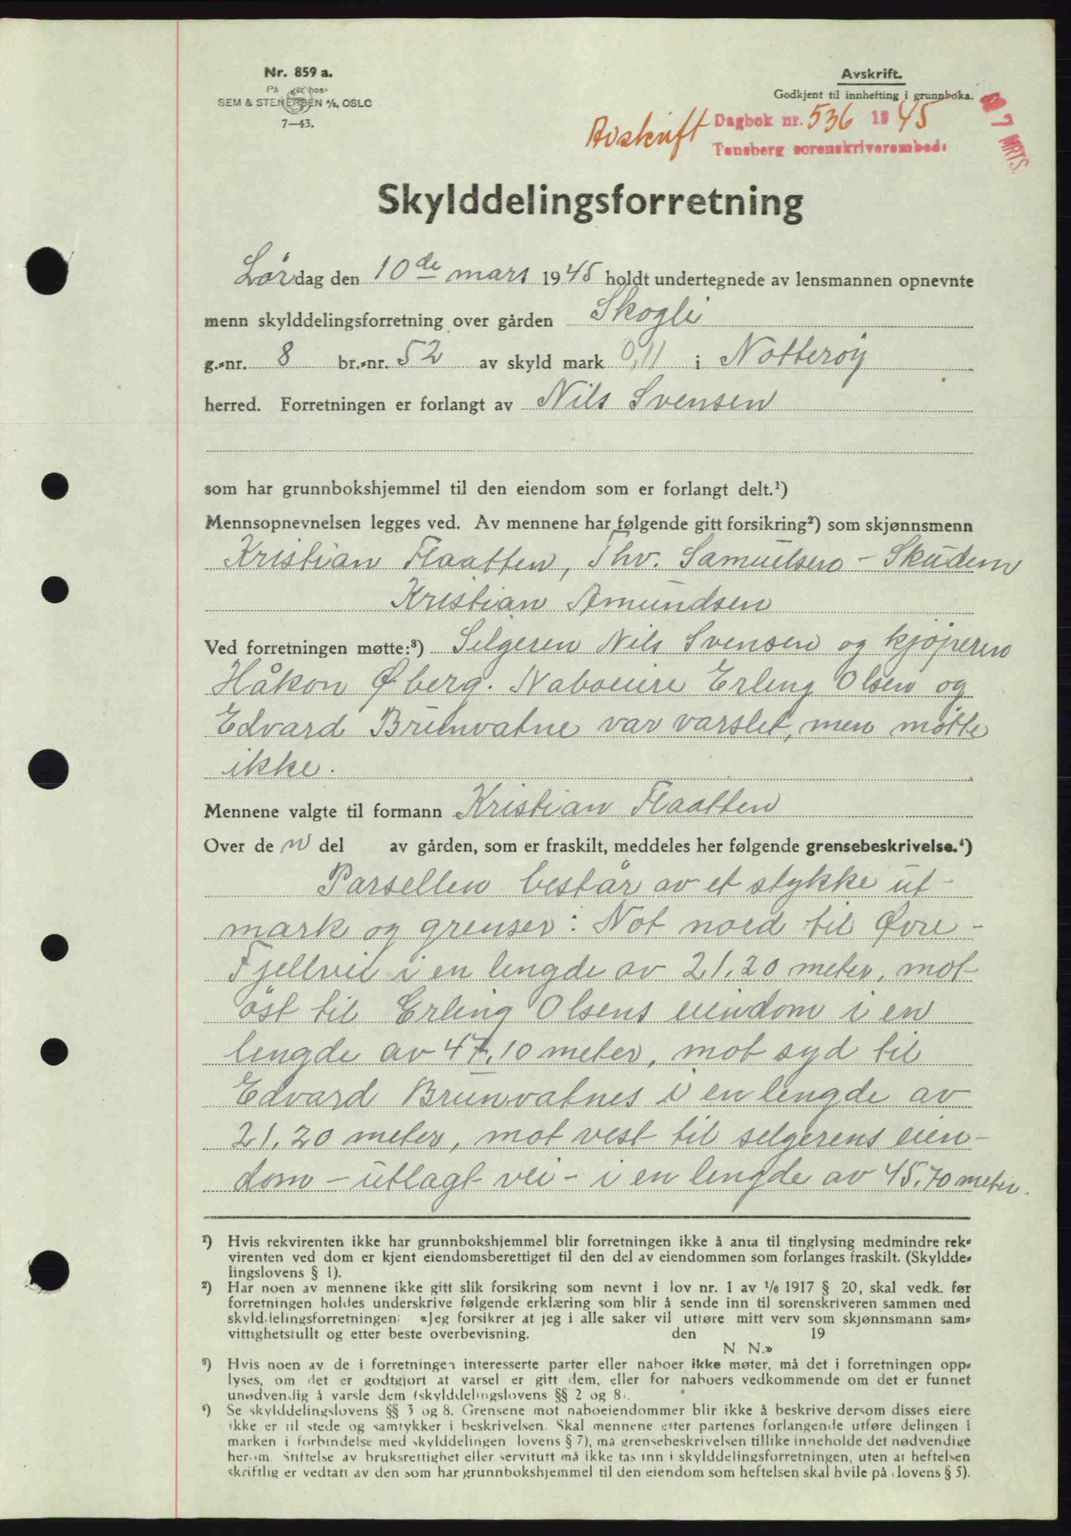 Nr. 859 a.
SEM & STENERSEN A/S, OSLO
7—43.
Avskrift.
Godkjent til innhefting i grunnboka.
Avskrift
Dagbok nr. 536 1945
Tønsberg sorenskriverembede
7 MRTS.
Skylddelingsforretning
Lördag den 10de mars 1945 holdt undertegnede av lensmannen opnevnte
menn skylddelingsforretning over gården Skogli
g.-nr. 8 br.-nr. 52 av skyld mark 0,11 i Nötteröy
herred. Forretningen er forlangt av Nils Svensen
som har grunnbokshjemmel til den eiendom som er forlangt delt.¹)
Mennsopnevnelsen legges ved. Av mennene har følgende gitt forsikring²) som skjønnsmenn
Kristian Flaatten, Thv. Samuelsen - Skudem
Kristian Amundsen
Ved forretningen møtte:³) Selgeren Nils Svensen og kjöperen
Håkon Øberg. Naboeiere Erling Olsen og
Edvard Brunvatne var varslet, men mötte
ikke.
Mennene valgte til formann Kristian Flaatten
Over den del av gården, som er fraskilt, meddeles her følgende grensebeskrivelse.⁴)
Parsellen består av et stykke ut-
mark og grenser: Mot nord til Øvre-
Fjellvei i en lengde av 21,20 meter, mot
öst til Erling Olsens eiendom i en
lengde av 47,10 meter, mot syd til
Edvard Brunvatnes i en lengde av
21,20 meter, mot vest til selgerens eien-
dom - utlagt vei - i en lengde av 45,70 meter.
¹) Hvis rekvirenten ikke har grunnbokshjemmel blir forretningen ikke å anta til tinglysing medmindre rek-
virenten ved dom er kjent eiendomsberettiget til den del av eiendommen som forlanges fraskilt. (Skyldde-
lingslovens § 1).
²) Har noen av mennene ikke gitt slik forsikring som nevnt i lov nr. 1 av 1/6 1917 § 20, skal vedk. før
forretningen holdes underskrive følgende erklæring som blir å sende inn til sorenskriveren sammen med
skylddelingsforretningen: «Jeg forsikrer at jeg i alle saker vil utføre mitt verv som skjønnsmann sam-
vittighetsfullt og etter beste overbevisning. den 19
N. N.»
³) Hvis noen av de i forretningen interesserte parter eller naboer ikke møter, må det i forretningen opp-
lyses, om det er godtgjort at varsel er gitt dem, eller for naboers vedkommende om det er funnet
unødvendig å varsle dem (skylddelingslovens §§ 2 og 8).
⁴) Se skylddelingslovens §§ 3 og 8. Grensene mot naboeiendommer blir ikke å beskrive dersom disses eiere
ikke er til stede og samtykker i beskrivelsen. Skal mennene etter partenes forlangende utføre delingen i
marken i forbindelse med skylddelingen (lovens § 7), må grensebeskrivelsen tillike inneholde det nødvendige
herom. Stiftelse av bruksrettighet eller servitutt må ikke tas inn i skylddelingsforretningen, uten at heftelsen
skriftlig er vedtatt av den som har grunnbokshjemmel til den eiendom som heftelsen skal hvile på (lovens § 5).